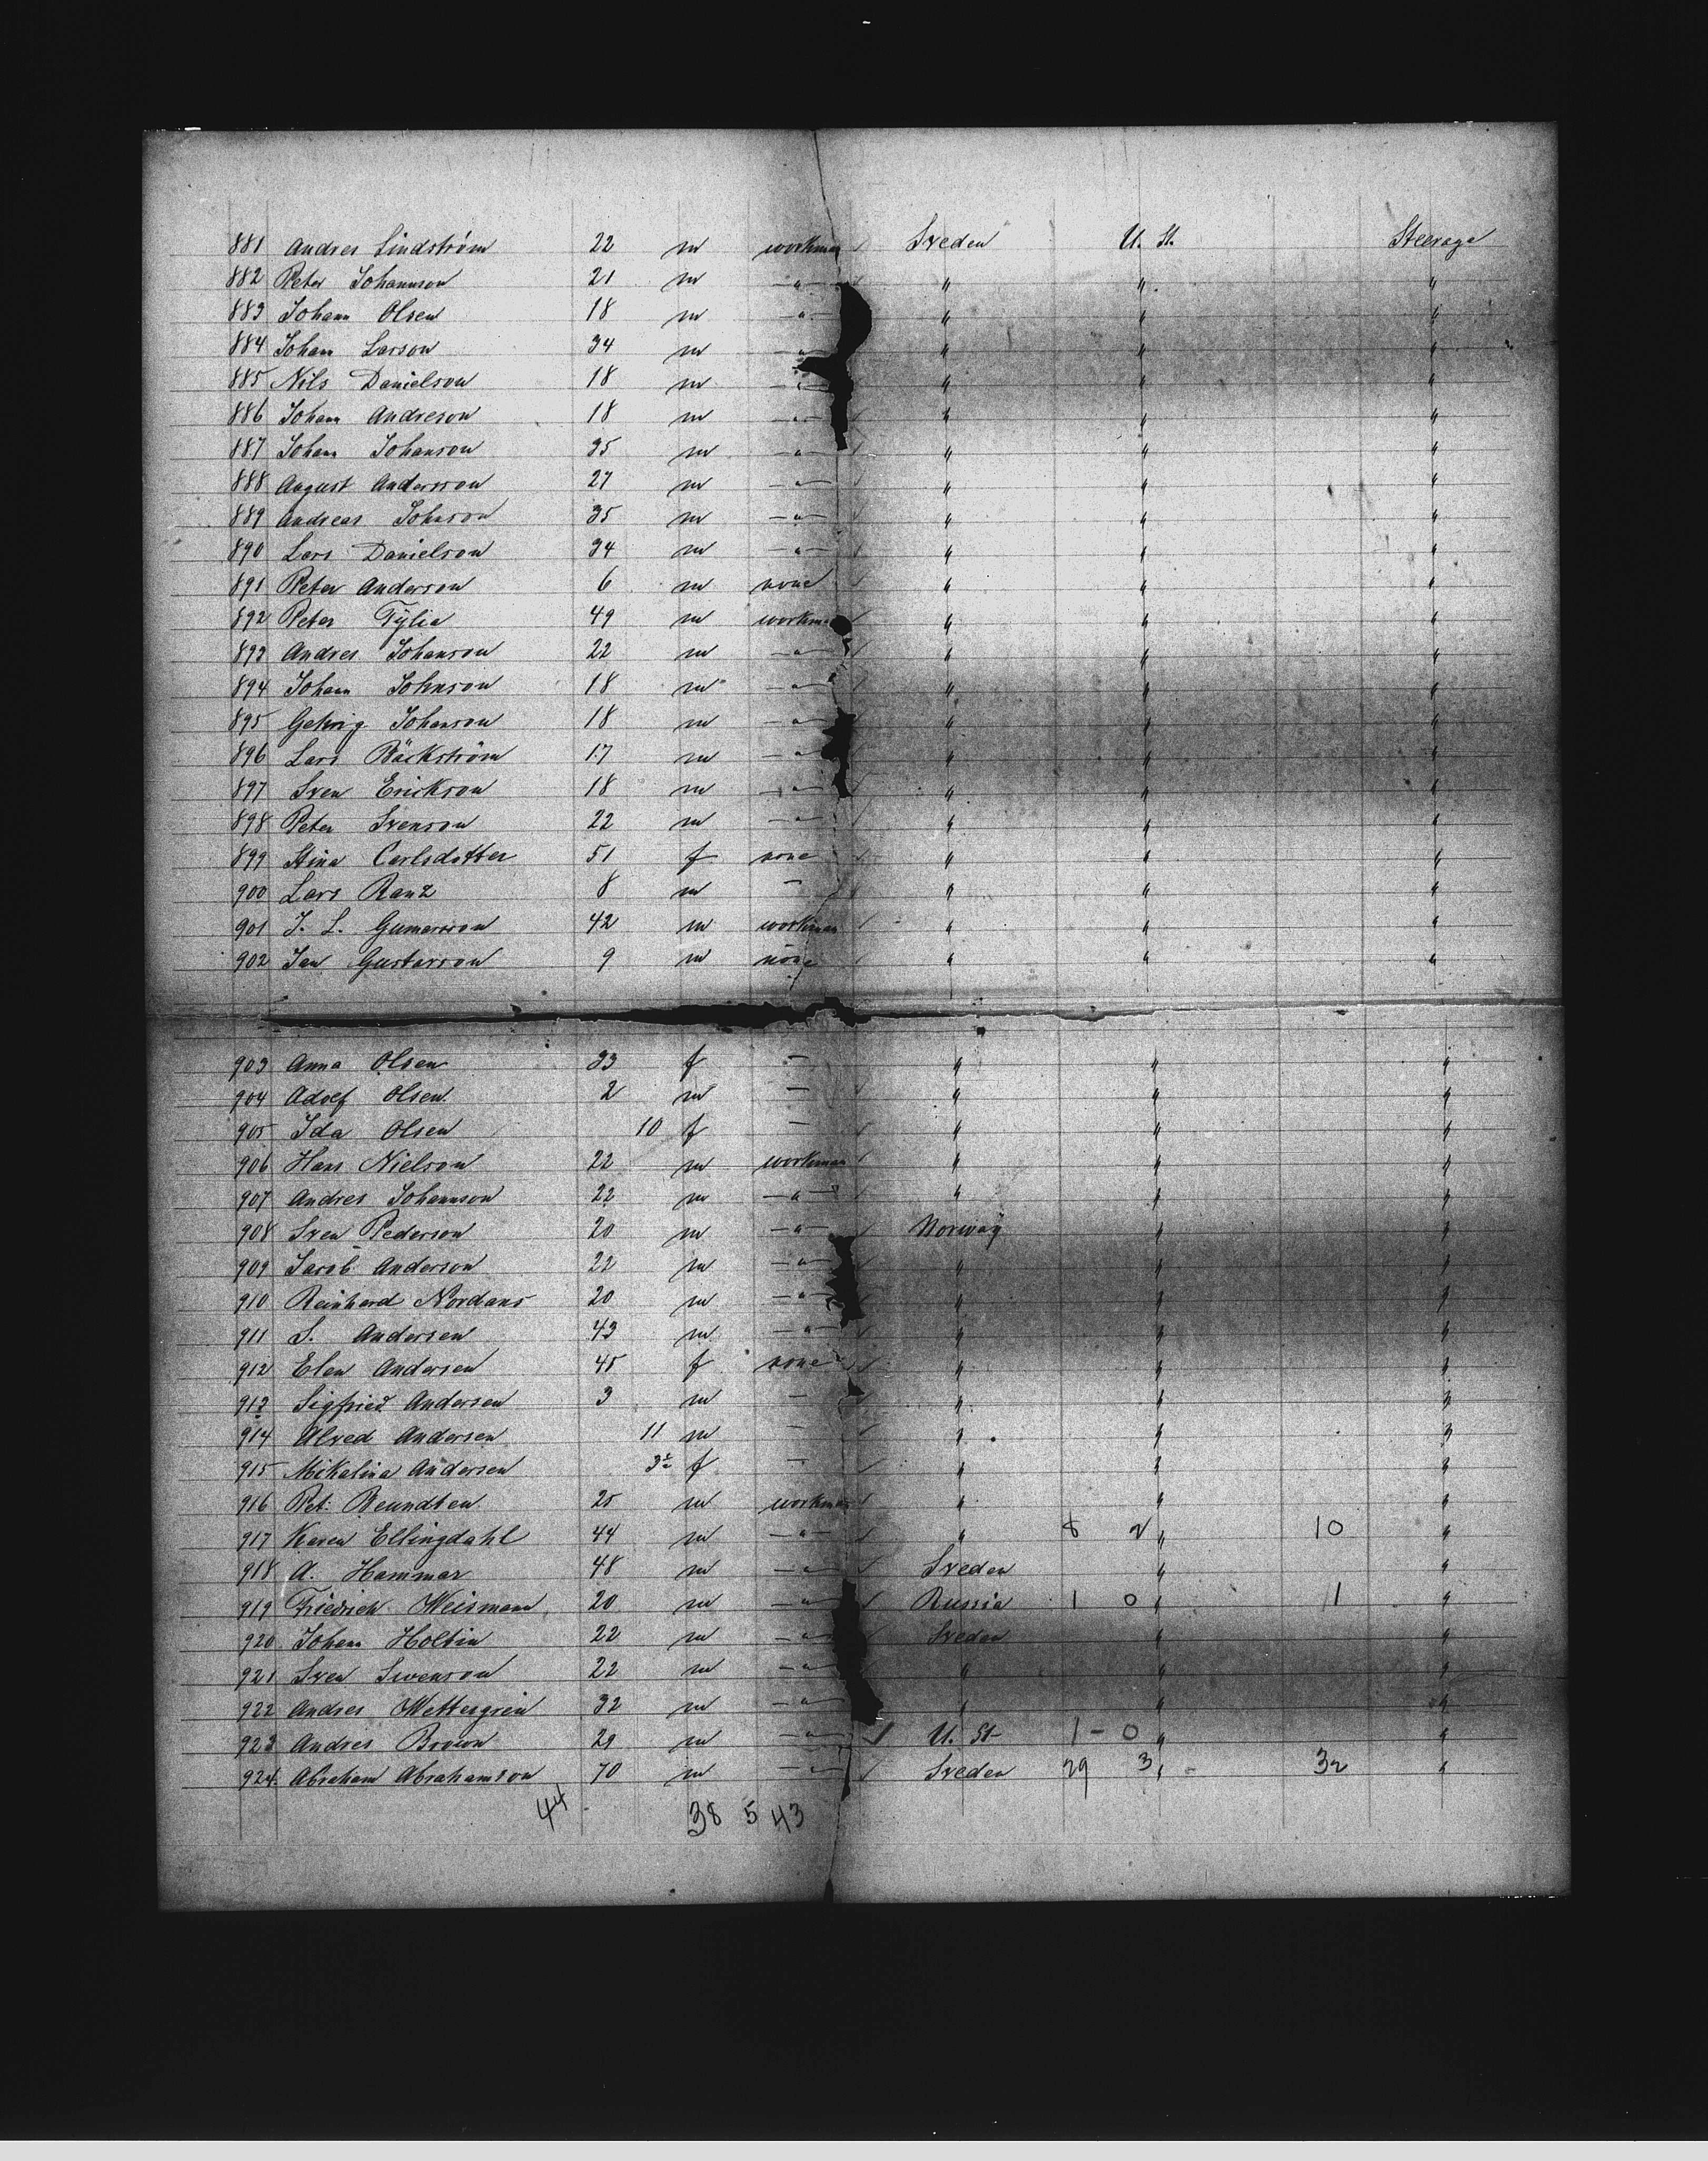 881 Andres Lindström 22 m workman Sveden U. St. Steerage
882 Peter Johannson 21 m —"— " " "
883 Johann Olsen 18 m —"— " " "
884 Johan Larson 34 m —"— " " "
885 Nils Danielson 18 m —"— " " "
886 Johann Andreson 18 m —"— " " "
887 Johann Johanson 35 m —"— " " "
888 August Andersson 27 m —"— " " "
889 Andreas Johnson 35 m —"— " " "
890 Lars Danielson 34 m —"— " " "
891 Peter Anderson 6 m none " " "
892 Peter Tylia 49 m workman " " "
893 Andres Johanson 22 m —"— " " "
894 Johann Johnson 18 m —"— " " "
895 Johanson 18 m —"— " " "
896 Lars Bäckström 17 m —"— " " "
897 Sven Erickson 18 m —"— " " "
898 Peter Svenson 22 m —"— " " "
899 Stina Carlsdotter 51 f none " " "
900 Lars Ranz 8 m — " " "
901 J. L. Gumersson 42 m workman " " "
902 Jan Gustavson 9 m none " " "
903 Anna Olsen 33 f — " " "
904 Adolf Olsen 2 m — " " "
905 Ida Olsen 10 f — " " "
906 Hans Nielson 22 m workman " " "
907 Andres Johannson 22 m —"— " " "
908 Sven Pederson 20 m —"— Norway " "
909 Jacob Anderson 22 m —"— " " "
910 Reinhard Nordans 20 m —"— " " "
911 S. Andersen 43 m —"— " " "
912 Elen Andersen 45 f none " " "
913 Sigfried Andersen 3 m — " " "
914 Alved Andersen 11 m — " " "
915 Mikalina Andersen 3 f — " " "
916 Pet. Beundten 25 m workman " " "
917 Karen Ellingdahl 44 m —"— " 8 2 " 10 "
918 A. Hammar 48 m —"— Sveden " "
919 Friedrich Weismann 20 m —"— Russia 1 0 " 11 "
920 Johann Holtin 22 m —"— Sveden " "
921 Sven Swenson 22 m —"— " " "
922 Andres Wettergrein 32 m —"— " " "
923 Andres Brown 29 m —"— U. St 1 - 0 " "
924 Abraham Abrahamson 70 m —"— Sveden 29 3 " 32 "
44 38 5 43